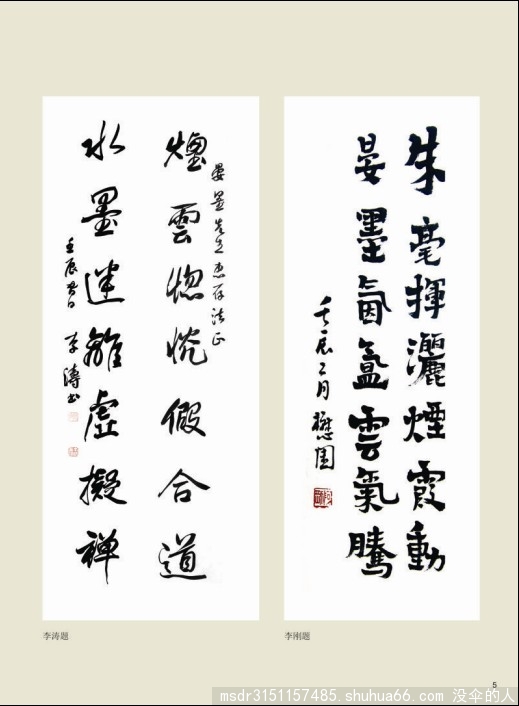 朱毫揮灑煙霞動
晏墨氤氳雲氣騰
壬辰二月 懋園
晏墨先生惠存法正
煙雲惚恍假合道
水墨迷離虛擬禪
壬辰春日 李濤书
李涛题
李刚题
5
msdr3151157485.shuhua66.com 没伞的人